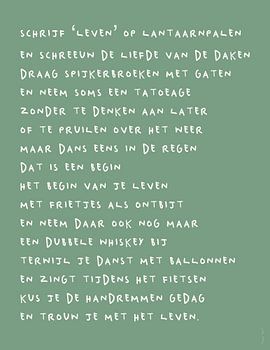 SCHRIJF 'LEVEN' OP LANTAARNPALEN
EN SCHREEUN DE LIEFDE VAN DE DAKEN
DRAAG SPIJKERBROEKEN MET GATEN
EN NEEM SOMS EEN TATOEAGE
ZONDER TE DENKEN AAN LATER
OF TE PRUILEN OVER HET WEER
MAAR DANS EENS IN DE REGEN
DAT IS EEN BEGIN
HET BEGIN VAN JE LEVEN
MET FRIETJES ALS ONTBIJT
EN NEEM DAAR OOK NOG MAAR
EEN DUBBELE WHISKEY BIJ
TERWIJL JE DANST MET BALLONNEN
EN ZINGT TIJDENS HET FIETSEN
KUS JE DE HANDREMMEN GEDAG
EN TROUN JE MET HET LEVEN.